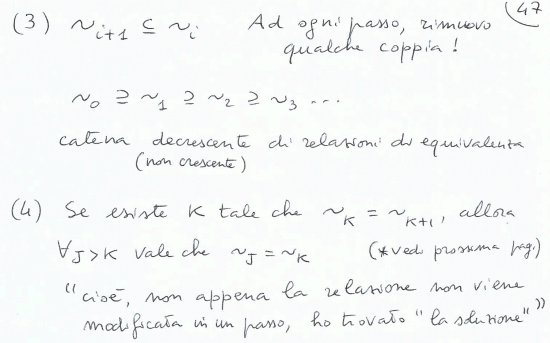 47
(3) ~ᵢ₊₁ ⊆ ~ᵢ Ad ogni passo, rimuovo
qualche coppia!
~₀ ⊇ ~₁ ⊇ ~₂ ⊇ ~₃ ...
catena decrescente di relazioni di equivalenza
(non crescente)
(4) Se esiste K tale che ~ₖ = ~ₖ₊₁, allora
∀J>K vale che ~J = ~K (*vedi prossima pag.)
"cioè, non appena la relazione non viene
modificata in un passo, ho trovato "la soluzione""